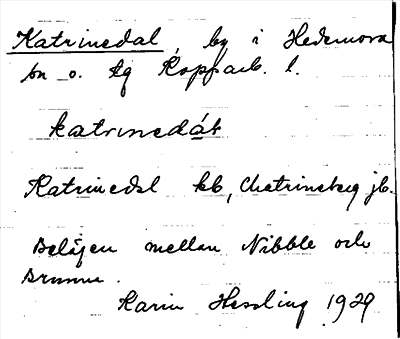 Katrinedal, by i Hedemora
sn o. tg Kopparb. l.
katrinedál
Katrinedal kb, Chatrineberg jb.
Belägen mellan Nibble och
Brunna.
Karin Hessling 1929